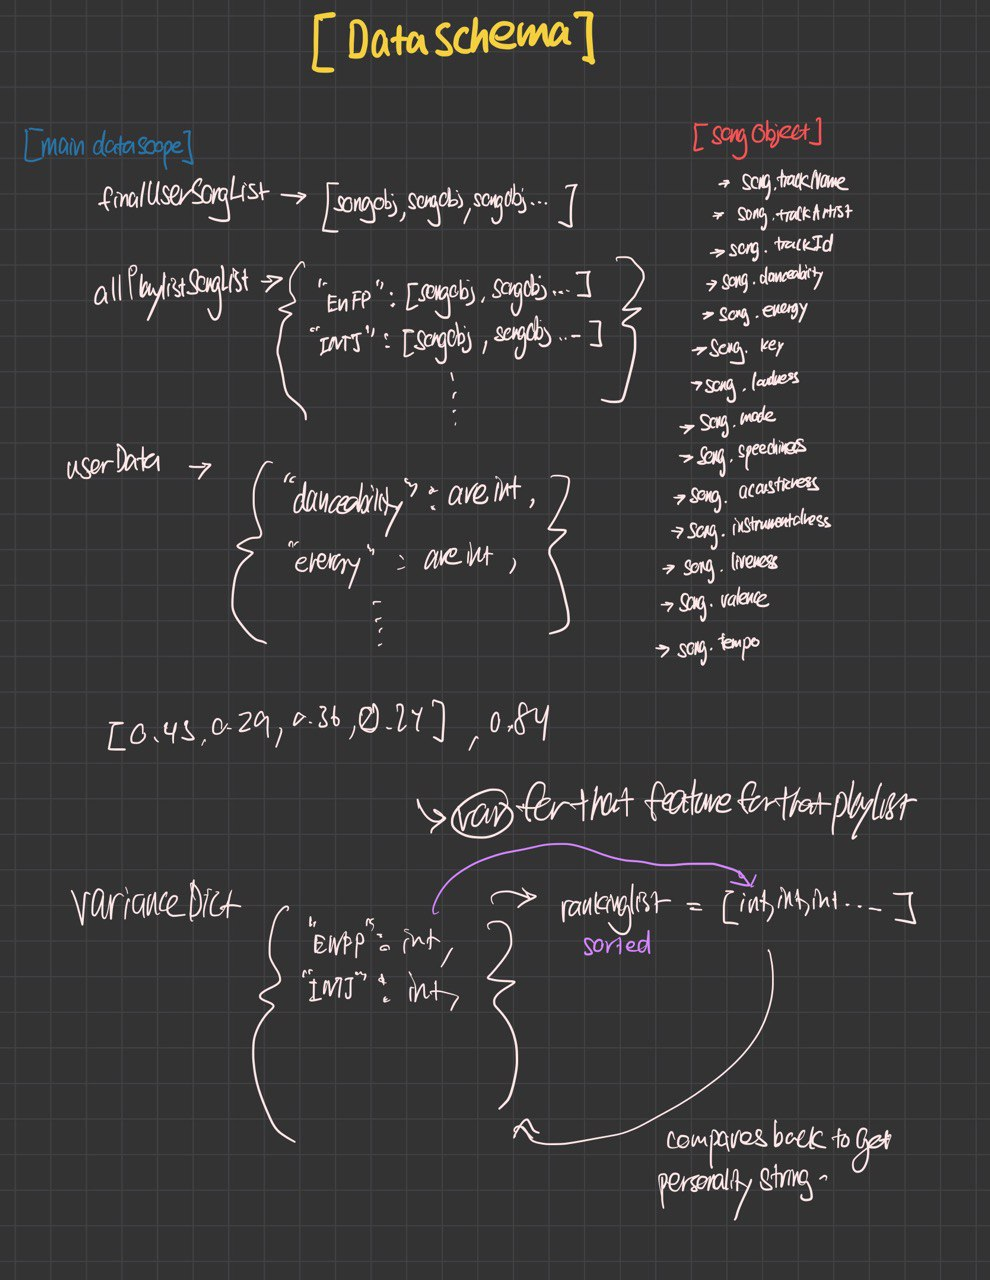 [Data Schema]
[main data scope]
finalUserSongList → [songobj, songobj, songobj... ]
allPlaylistSongList → {
"ENFP" : [songobj, songobj... ]
"INTJ" : [songobj, songobj ... ]
}
userData → {
"danceability" : ave int,
"energy" : ave int,
}
[song Object]
→ song.trackName
→ song.trackArtist
→ song.trackId
→ song.danceability
→ song.energy
→ song.key
→ song.loudness
→ song.mode
→ song.speechiness
→ song.acousticness
→ song.instrumentalness
→ song.liveness
→ song.valence
→ song.tempo
[0.43, 0.29, 0.36, 0.24] , 0.84
↳ var for that feature for that playlist
varianceDict {
"ENFP" : int,
"INTJ" : int,
}
→ rankinglist = [int, int, int .... ]
sorted
compares back to get
personality string